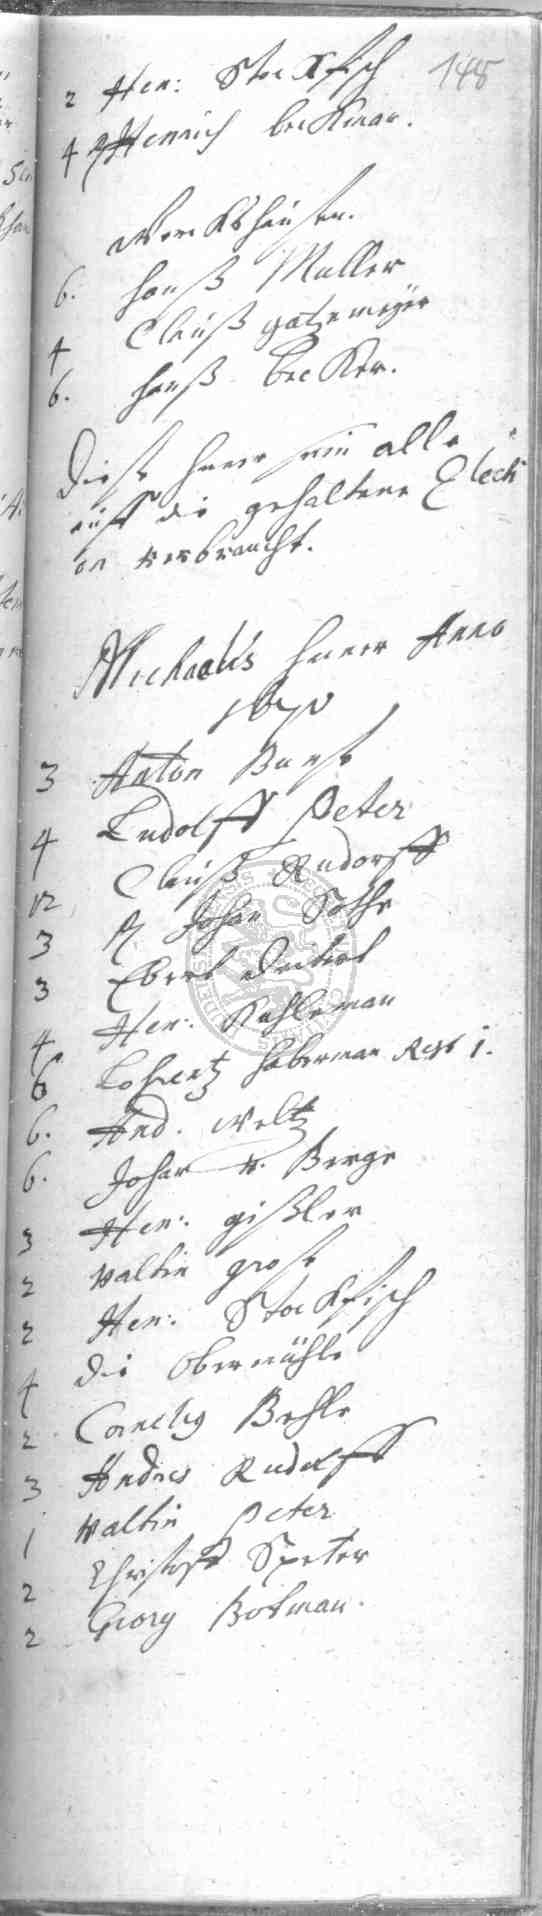 148
2 Hen: Stockfisch
4 Henrich beckman.
Werckshausen.
6. Hanß Muller
4 Clauß gatzemeyer
6. Hanß Becker.
Diese Huner sein alle
auff die gehaltene Electi
on verbraucht.
Michaelis Huner Anno
3 Anton Bunse
4 Ludolff Peter
12 Clauß Rudorff
3 Johan Rothe
3 Ebert
4 Hen: Kuhleman
6 Lohrentz Haberman Rest 1.
6. And. Weltz
6. Johan v. Berge
3 Hen: gißler
2 Valtin grose
2 Hen: Stockfisch
4 die Obermühle
2 Cornelig Behle
3 Andres Rudolff
1 Valtin Peter
2 Christoff Speter
2 Georg Botman.